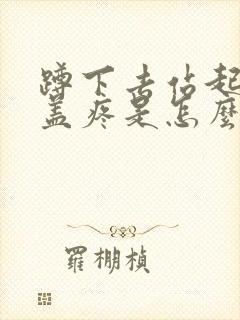 蹲下去站起
盖疼是怎麼
羅棚楨